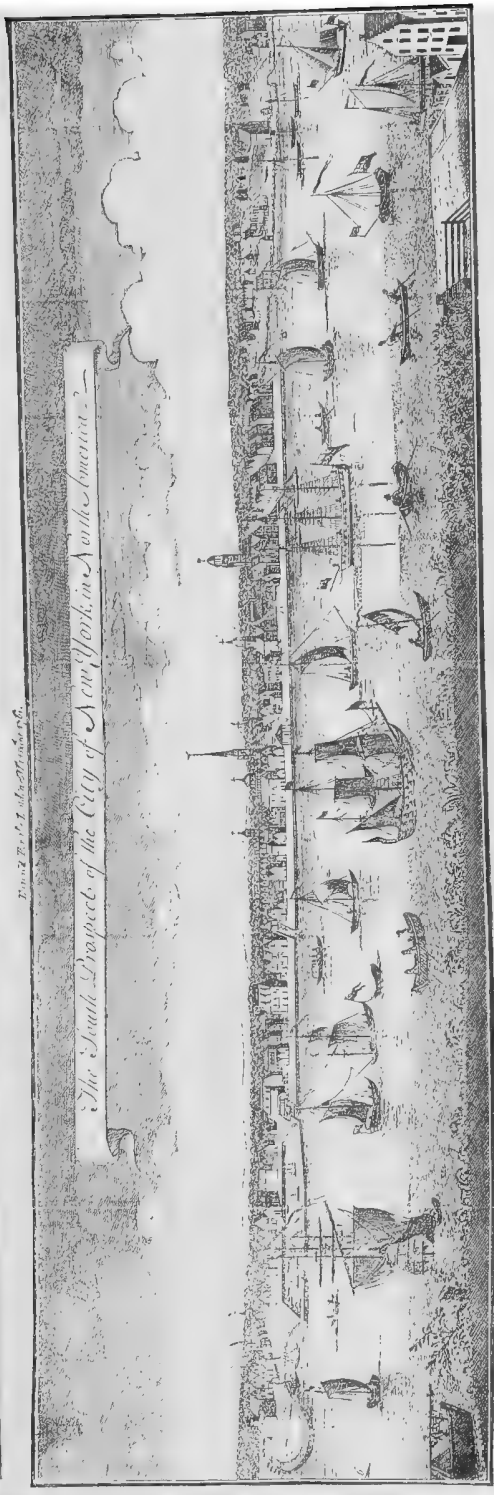 The South Prospect of the City of New York, in North America